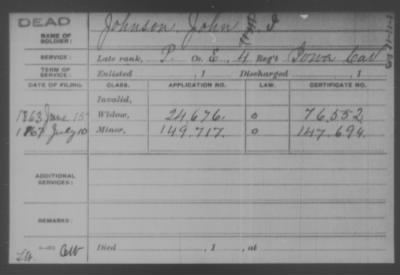 DEAD
NAME OF SOLDIER: Johnson, John
SERVICE: Late rank, P. Co. E, 4 Reg't Iowa Cav
TERM OF SERVICE: Enlisted , 1 Discharged , 1
DATE OF FILING. CLASS. APPLICATION NO. LAW. CERTIFICATE NO.
Invalid,
1863 June 15 Widow, 24,676. o 76,552
1867 July 10 Minor, 149,717. o 147,694.
ADDITIONAL SERVICES:
REMARKS:
Died , 1 , at